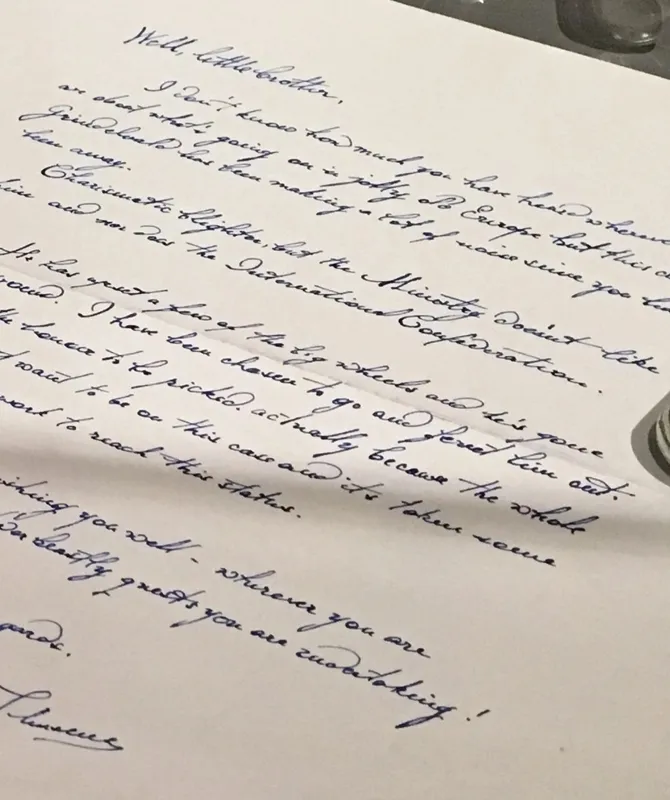 Well, little brother,
I don't know how much you have heard wherever you
are about what's going on in jolly old Europe but this
Grindelwald has been making a lot of noise since you
been away.
Charismatic blighter but the Ministry doesn't like
him and nor does the International Confederation.
He has upset a few of the big wheels and he's gone
I have been chosen to go and ferret him out.
honour to be picked, actually because the whole
want to be on this case and it's taken some
work to reach this status.
you well - wherever you are
beastly quests you are undertaking!
Theseus